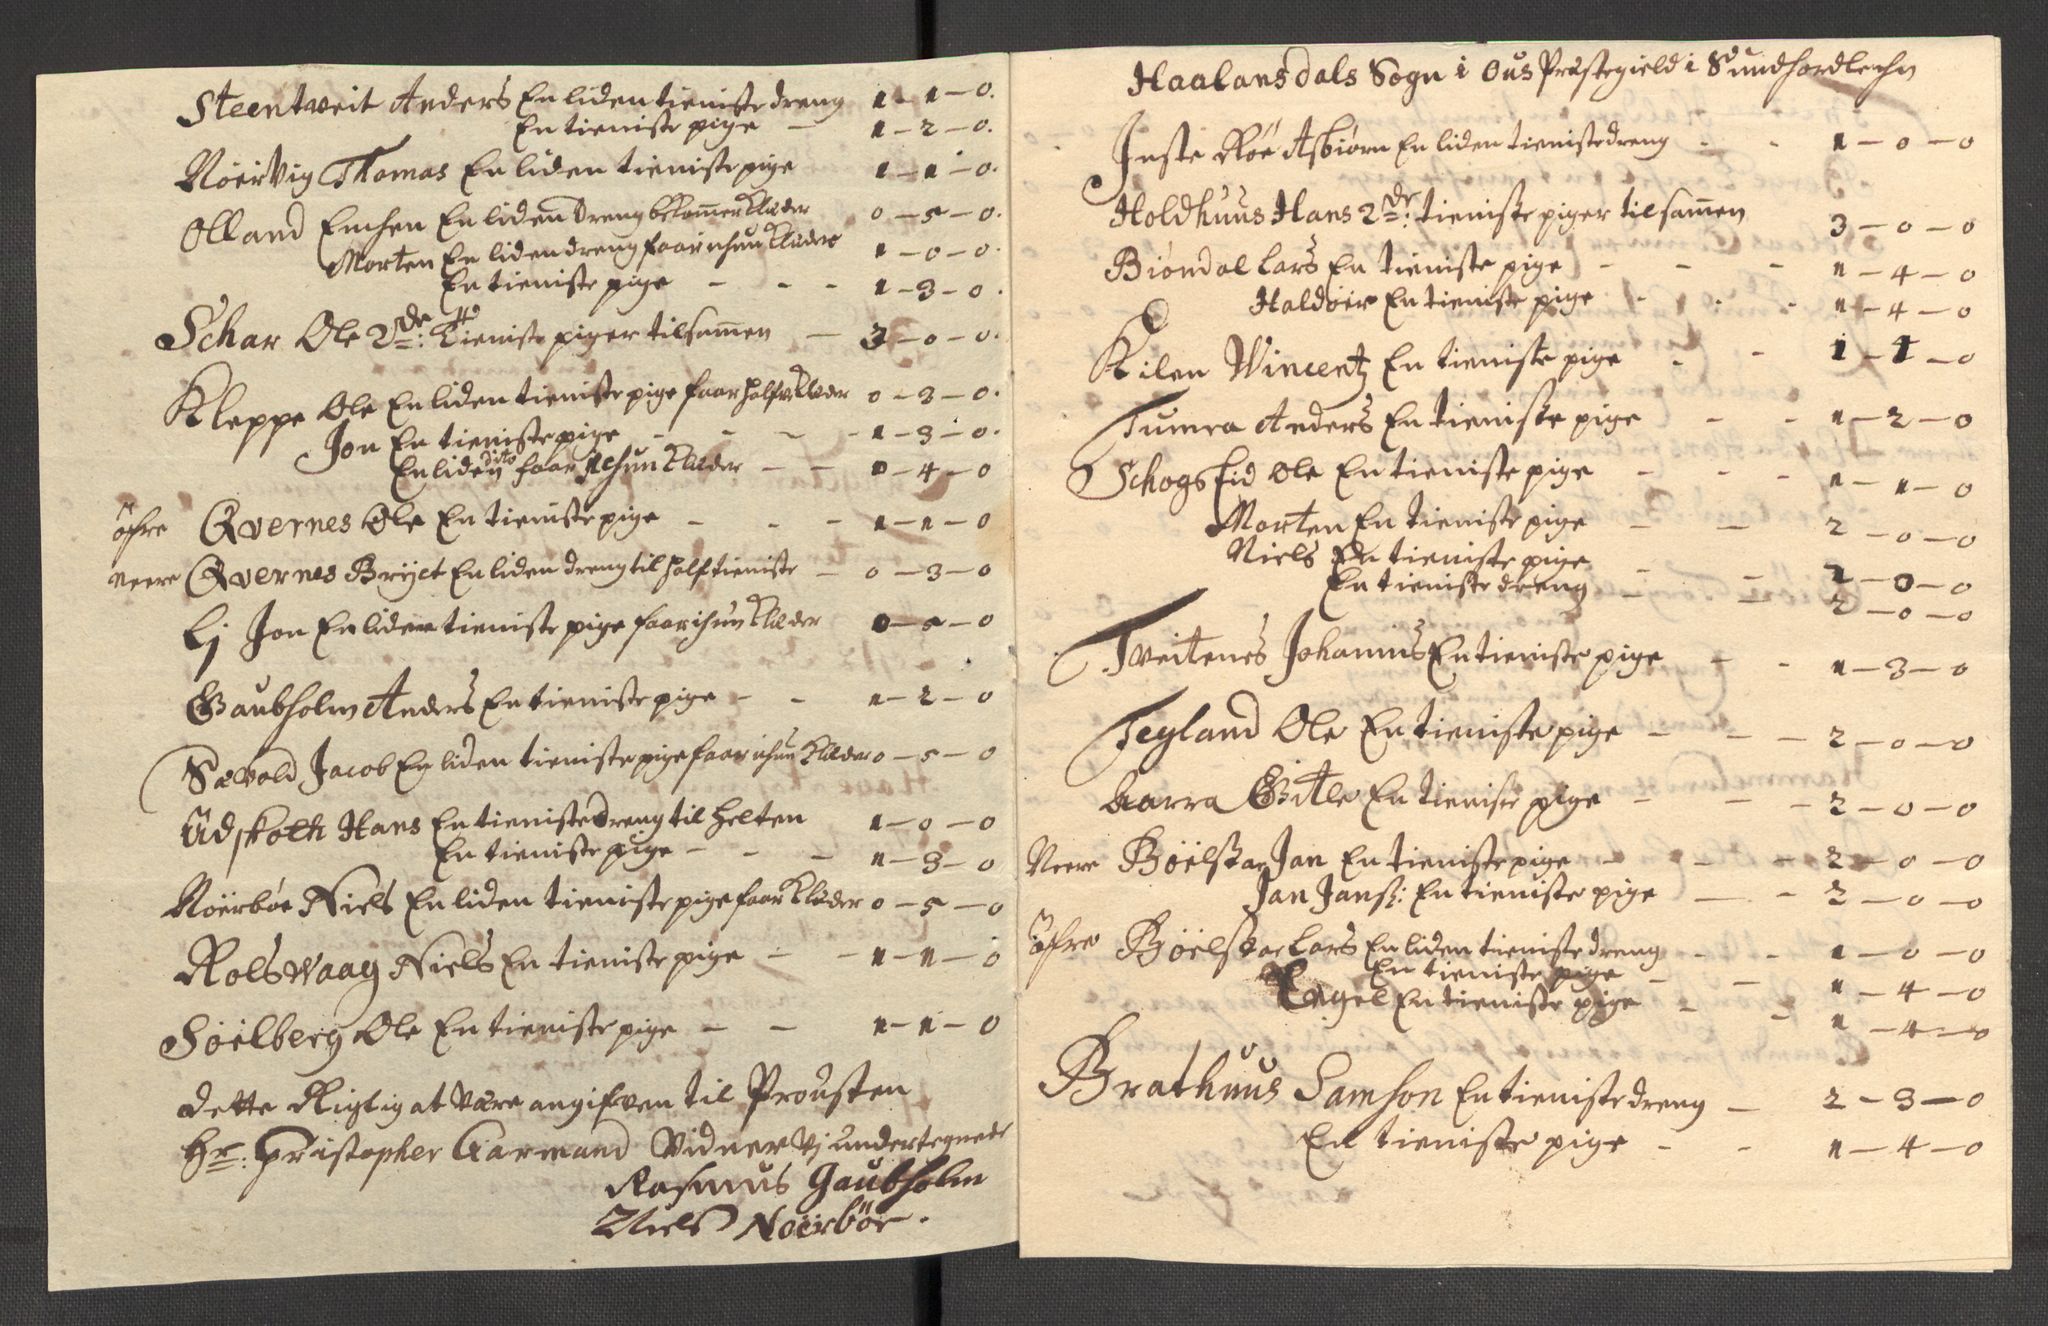 Steentveit Anders En liden tieniste dreng 1 - 1 - 0.
En tieniste pige - 1 - 2 - 0.
Nöervig Thomas En liden tieniste pige 1 - 1 - 0.
Olland En liden dreng bekommer Klæder 0 - 5 - 0.
Morten En liden dreng faar ichun Klæder 1 - 0 - 0.
En tieniste pige - - - 1 - 3 - 0.
Schar Ole 2de: tieniste piger tilsammen - 3 - 0 - 0.
Kleppe Ole En liden tieniste pige faar halfve Klæder 0 - 3 - 0.
Jon En tieniste pige - - - - 1 - 3 - 0.
En liden dito faar ichun Klæder - - 0 - 4 - 0
öfre Qvernes Ole En tieniste pige - - - 1 - 1 - 0
Neere Qvernes Brÿct En liden dreng til half tieniste - 0 - 3 - 0
Ej Jon En liden tieniste pige faar ichun Klæder 0 - 5 - 0
Gaubholm Anders En tieniste pige - - 1 - 2 - 0
Sævold Jacob En liden tieniste pige faar ichun Klæder 0 - 5 - 0
Üdskoth Hans En tieniste dreng til helten 1 - 0 - 0
En tieniste pige - - - 1 - 3 - 0
Nöerböe Niels En liden tieniste pige faar Klæder 0 - 5 - 0
Rolsvaag Niels En tieniste pige - - 1 - 1 - 0
Söelberg Ole En tieniste pige - - 1 - 1 - 0
Dette Rigtig at være angifven til Prousten
Hr: Christopher Garmand Vidner vj undertegnede
Rasmus Gaubholm
Niels Nöerböe.
Haalansdals Sogn i Ous Præstegield i Sundhordlehn
Inste Röe Asbiörn En liden tieniste dreng - - 1 - 0 - 0
Holdhuus Hans 2de: tieniste piger tilsammen 3 - 0 - 0
Biöndal Lars En tieniste pige - - - 1 - 4 - 0
Haldöer En tieniste pige - - - 1 - 4 - 0
Kilen Wincentz En tieniste pige - - 1 - 1 - 0
Tumra Anders En tieniste pige - - 1 - 2 - 0
Schogseid Ole En tieniste pige - - - 1 - 1 - 0
Morten En tieniste pige - - 2 - 0 - 0
Niels En tieniste pige - - 2 - 0 - 0
En tieniste dreng - - 2 - 0 - 0
Tveitenes Johannis En tieniste pige - - 1 - 3 - 0
Tegland Ole En tieniste pige - - - 2 - 0 - 0
Aarra Gitle En tieniste pige - - - 2 - 0 - 0
Neere Böelstar Jan En tieniste pige - - - 2 - 0 - 0
Jan Jans: En tieniste pige - - 2 - 0 - 0
Öfre Böelstar Lars En liden tieniste dreng - - 1 - 0 - 0
En tieniste pige - - 1 - 4 - 0
Engel En tieniste pige - - 1 - 4 - 0
Brathuus Samson En tieniste dreng - 2 - 3 - 0
En tieniste pige - - 1 - 4 - 0